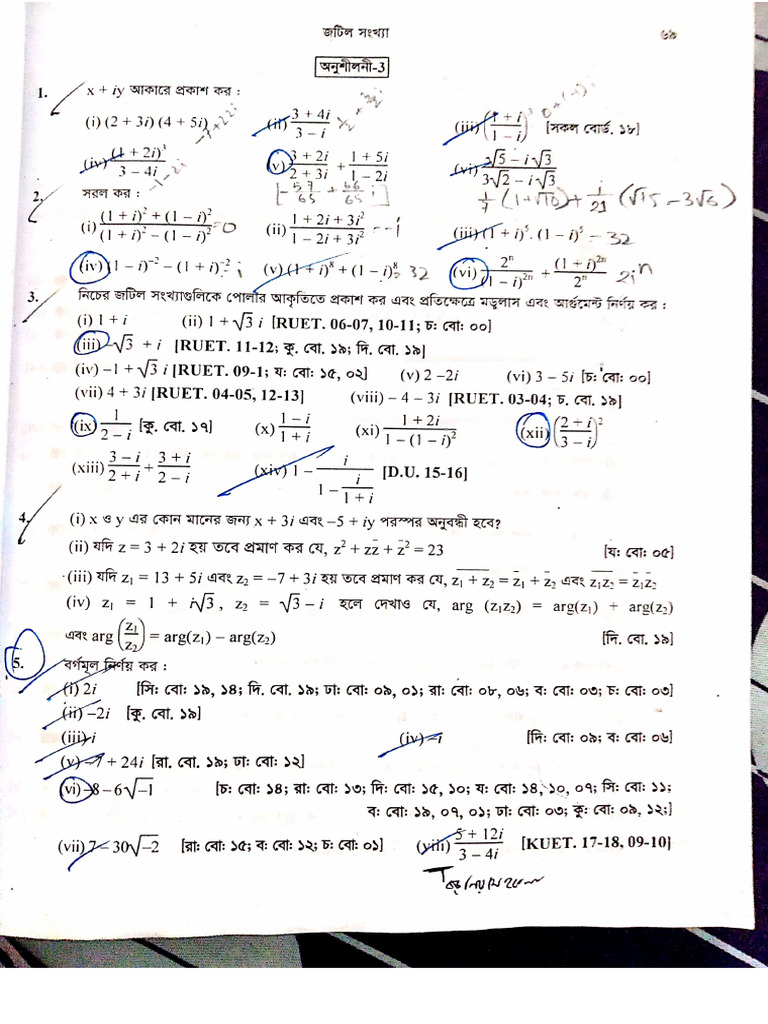 জটিল সংখ্যা ৬৯
অনুশীলনী-3
1. x + iy আকারে প্রকাশ কর :
(i) (2 + 3i) (4 + 5i) -7+22i (ii) (3 + 4i)/(3 – i) (iii) ((1 + i)/(1 – i))³ [সকল বোর্ড. ১৮] 0+(-1)i
(iv) (1 + 2i)³/(3 – 4i) -1-2i (v) (3 + 2i)/(2 + 3i) + (1 + 5i)/(1 – 2i) [-57/65 + 66/65 i] (vi) (2√5 – i√3)/(3√2 – i√3) 1/7 (1+√10) + 1/21 (√15 – 3√6)
2. সরল কর :
(i) ((1 + i)² + (1 – i)²)/((1 + i)² – (1 – i)²) =0 (ii) (1 + 2i + 3i²)/(1 – 2i + 3i²) = -i (iii) (1 + i)⁵. (1 – i)⁵ – 32
(iv) (1 – i)⁻² – (1 + i)⁻² – i (v) (1 + i)⁸ + (1 – i)⁸ 32 (vi) 2ⁿ/(1 – i)²ⁿ + (1 + i)²ⁿ/2ⁿ 2iⁿ
3. নিচের জটিল সংখ্যাগুলিকে পোলার আকৃতিতে প্রকাশ কর এবং প্রতিক্ষেত্রে মডুলাস এবং আর্গুমেন্ট নির্ণয় কর :
(i) 1 + i (ii) 1 + √3 i [RUET. 06-07, 10-11; চ: বো: ০০]
(iii) –√3 + i [RUET. 11-12; কু. বো. ১৯; দি. বো. ১৯]
(iv) –1 + √3 i [RUET. 09-1; য: বো: ১৫, ০২] (v) 2 –2i (vi) 3 – 5i [চ: বো: ০০]
(vii) 4 + 3i [RUET. 04-05, 12-13] (viii) – 4 – 3i [RUET. 03-04; চ. বো. ১৯]
(ix) 1/(2 – i) [কু. বো. ১৭] (x) (1 – i)/(1 + i) (xi) (1 + 2i)/(1 – (1 – i)²) (xii) ((2 + i)/(3 – i))²
(xiii) (3 – i)/(2 + i) + (3 + i)/(2 – i) (xiv) 1 – i/(1 – i/(1 + i)) [D.U. 15-16]
4. (i) x ও y এর কোন মানের জন্য x + 3i এবং –5 + iy পরস্পর অনুবন্ধী হবে?
(ii) যদি z = 3 + 2i হয় তবে প্রমাণ কর যে, z² + zz̄ + z̄² = 23 [য: বো: ০৫]
(iii) যদি z₁ = 13 + 5i এবং z₂ = –7 + 3i হয় তবে প্রমাণ কর যে, z̅₁̅ ̅+̅ ̅z̅₂̅ = z̄₁ + z̄₂ এবং z̅₁̅z̅₂̅ = z̄₁ z̄₂
(iv) z₁ = 1 + i√3 , z₂ = √3 – i হলে দেখাও যে, arg (z₁z₂) = arg(z₁) + arg(z₂)
এবং arg (z₁/z₂) = arg(z₁) – arg(z₂) [দি. বো. ১৯]
5. বর্গমূল নির্ণয় কর :
(i) 2i [সি: বো: ১৯, ১৪; দি. বো. ১৯; ঢা: বো: ০৯, ০১; রা: বো: ০৮, ০৬; ব: বো: ০৩; চ: বো: ০৩]
(ii) –2i [কু. বো. ১৯]
(iii) i (iv) –i [দি: বো: ০৯; ব: বো: ০৬]
(v) –7 + 24i [রা. বো. ১৯; ঢা: বো: ১২]
(vi) –8 – 6√–1 [চ: বো: ১৪; রা: বো: ১৩; দি: বো: ১৫, ১০; য: বো: ১৪, ১০, ০৭; সি: বো: ১১;
ব: বো: ১৯, ০৭, ০১; ঢা: বো: ০৩; কু: বো: ০৯, ১২;]
(vii) 7 – 30√–2 [রা: বো: ১৫; ব: বো: ১২; চ: বো: ০১] (viii) (5 + 12i)/(3 – 4i) [KUET. 17-18, 09-10]